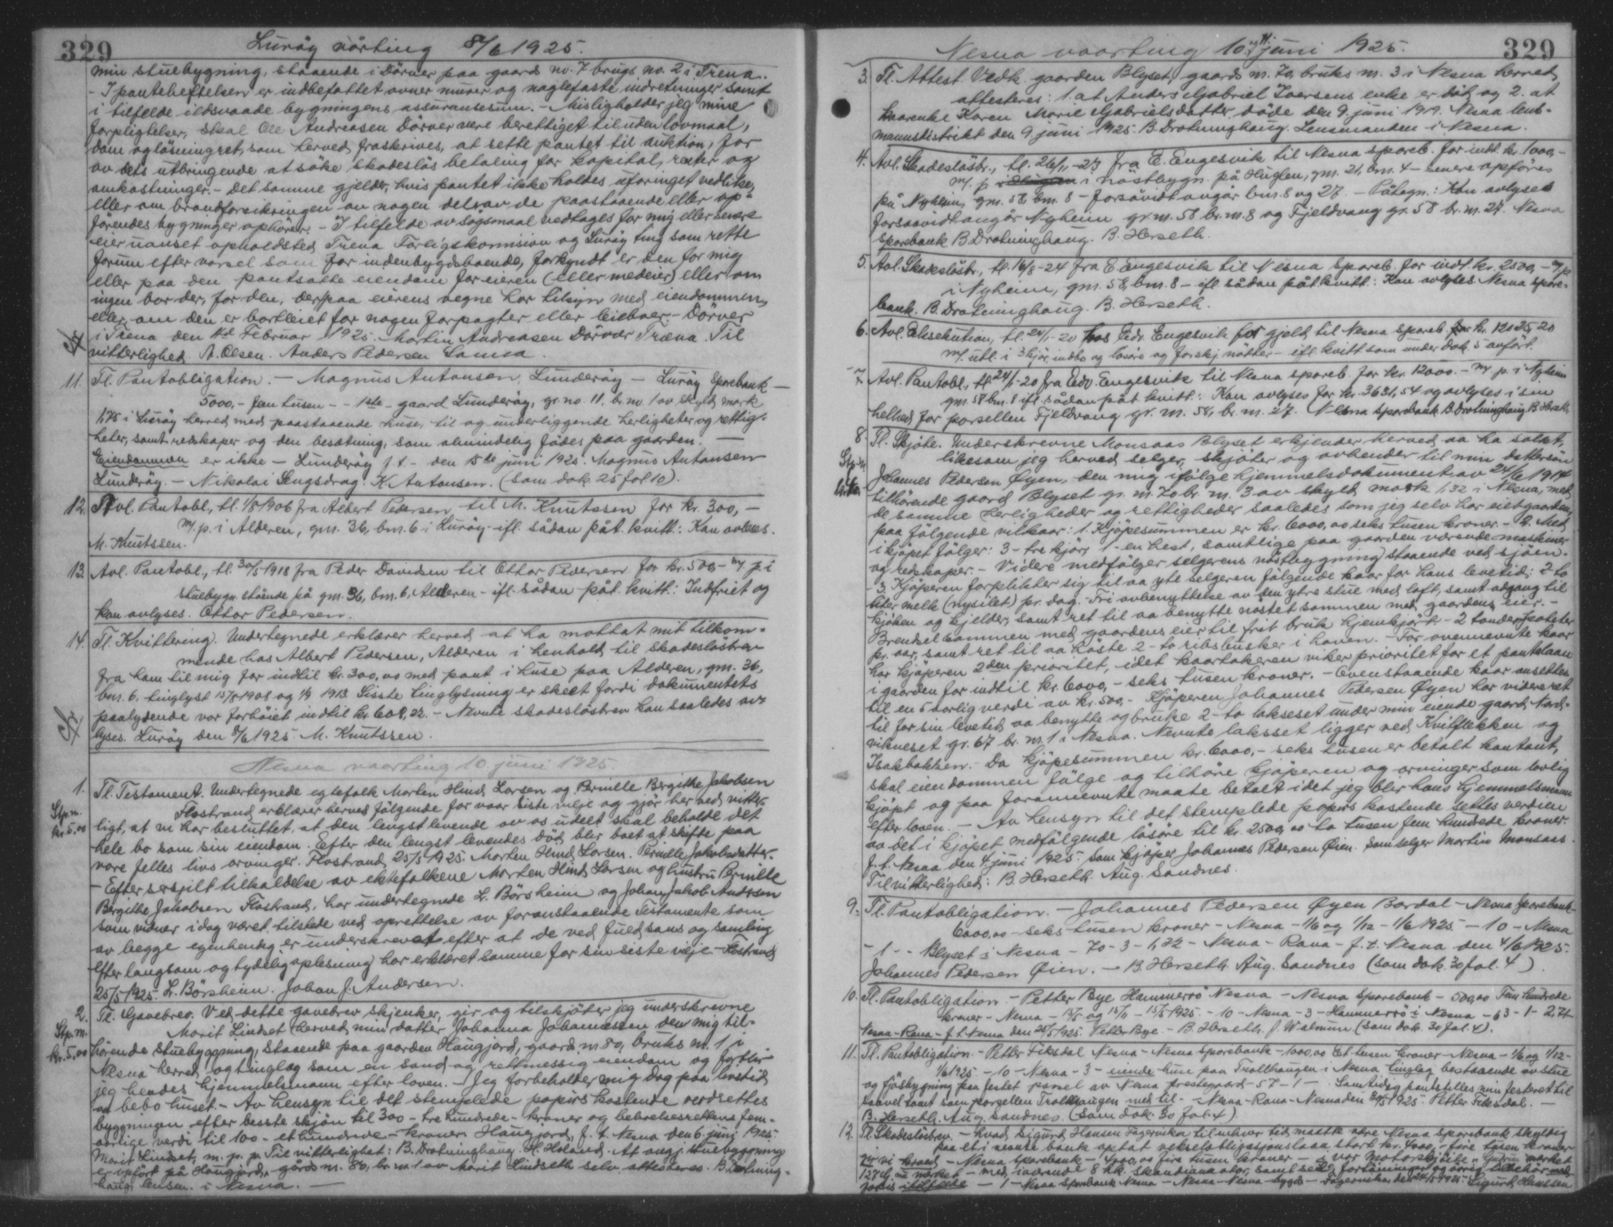 329
Lurøy vårting 8/6 1925.
min stuebygning, staaende i Dörvær paa gaards no. 7 brugs no. 2 i Træna.
- I panteheftelsen er indbefattet ovner murer og naglefaste indretninger samt
i tilfelde ildsvaade bygningens assuransesum. - Misligholder jeg mine
forpligtelser, skal Ole Andreasen Dörvær være berettiget til uden lovmaal,
dom og lösningsret, som herved fraskrives, at sette pantet til auktion, for
av dets utbringende at söke skadeslös betaling for kapital, renter og
omkostninger. - Det samme gjelder, hvis pantet ikke holdes uforringet vedlike,
eller om brandforsikringen av nogen del av de paastaaende eller op-
förendes bygninger ophörer. - I tilfelde av søgsmaal vedtages for mig eller senere
eier uanset opholdssted Træna Forligskomision og Lurøy ting som rette
forum efter varsel som for indenbygdsboende, forkyndt er den for mig
eller paa den pantsatte eiendom for eieren (eller medeier) eller om
ingen bor der, for den, der paa eierens vegne har tilsyn med eiendommen,
eller om den er bortleiet for nogen forpagter eller leieboer. - Dörvær
i Træna den Februar 1925. Martin Andreasen Dörvær Træna. Til
vitterlighed A. Olsen. Anders Pedersen Sanna.
11. Tl. Pantobligation. - Magnus Antonsen, Lunderöy - Luröy Sparebank -
5000,- fem tusen - - 1ste - gaard Lunderöy, gr. no. 11. br. no 1 av skyld mark
1,75 i Luröy herred med paastaaende huse, til og underliggende herligheter og rettig-
heter, samt redskaper og den besætning, som almindelig födes paa gaarden. -
Eiendommen er ikke - Lunderöy f. t. - den 15de juni 1925. Magnus Antonsen
Lunderöy. - Nikolai Sengsdrag. K. Antonsen. (Som dok. 25 fol 10).
12. Avl. Pantobl., tl. 1/8 1906 fra Albert Pedersen til M. Knutssen for kr. 300,-
m/p. i Alderen, gm. 36, bm. 6 i Luröy - ifl. sådan påt. kvitt: Kan avlyses.
M. Knutssen.
13. Avl. Pantobl., tl. 30/5 1918 fra Peder Davidsen til Ottar Pedersen for kr. 500,- m/p i
stuebygn. stående på gm. 36, bm. 6, Alderen - ifl. sådan påt. kvitt: Indfriet og
kan avlyses. Ottar Pedersen.
14. Tl. Kvittering. Undertegnede erklærer herved at ha mottat mit tilkom-
mende hos Albert Pedersen, Alderen i henhold til skadeslösbrev
fra ham til mig for indtil kr. 300,00 med pant i huse paa Alderen, gm. 36,
bm. 6. tinglyst 15/8 1908 og 1/8 1913. Siste tinglysning er skeet fordi dokumentets
paalydende var forhöiet indtil kr. 608,22. - Nevnte skadeslösbrev kan saaledes av-
lyses. Luröy den 8/6 1925 M. Knutssen.
Nesna vaarting 10 juni 1925.
1. Tl. Testament. Undertegnede egtefolk Morten Hind Larsen og Pernille Birgithe Jakobsen
Stp.m. kr. 5.00
Flostrand erklærer herved fölgende for vaar siste vilje og gjör herved vitter-
ligt, at vi har besluttet, at den lengstlevende av os udelt skal beholde det
hele bo som sin eiendom. Efter den lengst levendes död blir boet at skifte paa
vore felles livs arvinger. Flostrand 25/5 1925 Morten Hind Larsen. Pernille Jakobsdatter.
- Efter serskilt tilkaldelse av ektefolkene Morten Hind Larsen og hustru Pernille
Birgithe Jakobsen Flostrand, har undertegnede L. Börsheim og Johan Jakob Andersen
som vidner idag været tilstede ved oprettelse av foranstaaende Testamente som
av begge egenhendig er underskrevet efter at de ved fuld sans og samling
efter langsom og tydelig oplesning har erklæret samme for sin siste vilje. - Flostrand
25/5 1925. L. Börsheim. Johan J. Andersen.
2. Tl. Gavebrev. Ved dette gavebrev skjenker, gir og tilskjöter jeg underskrevne
Stp.m. kr. 5.00
Marit Lindset herved min datter Johanna Johannessen den mig til-
hörende stuebygning, staaende paa gaarden Haugjord, gaards nr. 80, bruks nr. 1, i
Nesna herred, og tinglæg som en sand og retmessig eiendom og forblir
jeg hendes hjemmelsmann efter loven. - Jeg forbeholder mig dog paa levetid
at bebo huset. - Av hensyn til det stemplede papirs kostende verdsettes
bygningen efter beste skjön til 300 - tre hundrede - kroner og beboelsesrettens fem-
aarlige verdi til 100 - ethundrede - kroner. Haugjord, f. t. Nesna den 6 juni 1925.
Marit Lindset, m. p. p. Til vitterlighet: B. Drotninghaug. H. Holand. At angj. stuebygning
er opført på Haugjord, gårds nr. 80, br. nr 1 av Marit Lindseth selv, attesteres. B. Drotning-
haug, lensm. i Nesna. -
329
Nesna vaarting 10de juni 1925.
3. Tl. Attest. Vedk. gaarden Blyset, gaards nr. 70, bruks nr. 3 i Nesna herred,
attesteres: 1. at Anders Gabriel Iversens enke er död, og 2. at
haarenke Karen Marie Gabrielsdatter döde den 9 juni 1919. Nesna lens-
mannsdistrikt den 9 juni 1925. B. Drotninghaug. Lensmanden i Nesna.
4. Avl. Skadeslösbr., tl. 26/1 -23 fra E. Engesvik til Nesna spareb. for indt. kr. 1000,-
m/p i nöstbygn. på Huglen, gm. 21, bm. 4 - senere opföres
på Nyheim, gm. 58 bm. 8 - forsåvidt angår bm. 8 og 27. - Påtegn.: Kan avlyses
forsaavidt angår Nyheim gr. nr. 58 br. nr. 8 og Fjeldvang gr. 58 br. nr. 27. Nesna
sparebank B. Drotninghaug. B. Herseth.
5. Avl. Skadeslösbr., tl. 16/8 -24 fra E. Engesvik til Nesna spareb. for indt. kr. 2500,- m/p
i Nyheim, gm. 58, bm. 8 - ifl. sådan påt. kvitt: Kan avlyses Nesna spare-
bank. B. Drotninghaug. B. Herseth.
6. Avl. Eksekution, tl. 24/1 -20 hos Edv. Engesvik for gjeld til Nesna spareb. for kr. 12035,20
m/utl. i 3 kjör indbo og lösöre og forskj. nötter - ifl. kvitt som under dok. 5 anfört.
7. Avl. Pantobl., tl. 24/1 -20 fra Edv. Engesvik til Nesna spareb. for kr. 12000.- m/p. i Nyheim
gm. 58 bm. 8 ifl. sådan påt kvitt: Kan avlyses for kr. 3631,54 og avlyses i sin
helhed for parsellen Fjeldvang gr. nr. 58, br. nr. 27. Nesna Sparebank B. Drotninghaug B. Herseth.
8. Tl. Skjöte. Underskrevne Monsaas Blyset erkjender herved aa ha solgt,
likesom jeg herved selger, skjöter og avhender til min dattersön
Johannes Pedersen Öyen, den mig ifölge hjemmelsdokument av 24/6 1914
tilhörende gaard Blyset gr. nr. 70 br. nr. 3 av skyld mark 1,32 i Nesna, med
de samme herligheder og rettigheder saaledes som jeg selv har eiet gaarden,
paa fölgende vilkaar: 1. Kjöpesummen er kr. 6000,00 seks tusen kroner. - 2. Med
i kjöpet fölger: 3 - tre kjör, 1 - en hest, samtlige paa gaarden værende maskiner
og redskaper. - Videre medfölger selgerens nöstbygning staaende ved sjöen.
- 3. Kjöperen forplikter sig til aa yte selgeren fölgende kaar for hans levetid: 2 - to
liter melk (nysilet) pr. dag. Fri avbenyttelse av den ytre stue med loft, samt adgang til
kjöken og kjelder, samt ret til aa benytte nöstet sammen med gaardens eier. -
Brendsel sammen med gaardens eier til frit bruk hjemkjört. - 2 tönder poteter
pr. aar, samt ret til aa höste 2 - to ribsbusker i haven. - For ovennevnte kaar
har kjöperen 2den prioritet, idet kaartakeren viker prioritet for et pantelaan
i gaarden for indtil kr. 6000,- seks tusen kroner. - Ovenstaaende kaar ansettes
til en 5 aarlig verdi av kr. 500,- Kjöperen Johannes Pedersen Öyen har videre ret
til for sin levetid aa benytte og bruke 2 - to laksesett under min eiende gaard Nord-
vikneset gr. 67 br. nr. 1 i Nesna. Nevnte laksset ligger ved Kvitflekken og
Isakbakken. Da kjöpesummen kr. 6000,- seks tusen er betalt kontant,
skal eiendommen fölge og tilhöre kjöperen og arvinger som lovlig
kjöpt og paa forannevnte maate betalt idet jeg blir hans hjemmelsmann
efter loven. - Av hensyn til det stemplede papirs kostende settes verdien
av det i kjöpet medfölgende lösöre til kr. 2500,00 to tusen fem hundrede kroner.
f. t. Nesna den 4 juni 1925. Som kjöper Johannes Pedersen Öien. Som selger Martin Monsaas.
Til vitterlighed: B. Herseth Aug. Sandnes.
9. Tl. Pantobligation. - Johannes Pedersen Öyen Bardal - Nesna Sparebank -
6000,00 - seks tusen kroner - Nesna - 1/6 og 1/12 - 1/6 1925 - 10 - Nesna
- 1 - - Blyset i Nesna - 70 - 3 - 1,32 - Nesna - Rana - f. t. Nesna den 4/6 1925.
Johannes Pedersen Öien. - B. Herseth Aug. Sandnes (som dok. 30 fol. 4).
10. Tl. Pantobligation - Petter Bye Hammerö Nesna - Nesna Sparebank - 500,00 Fem hundrede
kroner - Nesna - 15/5 og 15/11 - 15/5 1925 - 10 - Nesna - 3 - Hammerö i Nesna - 63 - 1 - 2,74
Nesna - Rana - f. t. Nesna den 1925. Petter Bye. - B. Herseth, J. Walmann (som dok. 30 fol. 4).
11. Tl. Pantobligation - Petter Fiksdal Nesna - Nesna Sparebank - 1000,00 Et tusen kroner - Nesna - 1/6 og 1/12 -
1/6 1925 - 10 - Nesna - 3 - mine hus paa Trollhaugen i Nesna tinglag bestaaende av stue
og fjösbygning paa festet parsel av Nesna prestegaard - 57 - 1 - Samtidig pantstilles min festeret til
saavel samt som parsellen Trollhaugen med til - Nesna - Rana - Nesna den 1925. Petter Fiksdal. -
B. Herseth. Aug. Sandnes (som dok. 30 fol. 4)
12. Tl. Skadeslösbrev. - hvad Sigurd Hansen Jægervika til enhver tid maatte være Nesna Sparebank skyldig